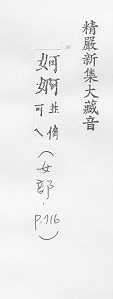 精嚴新集大藏音
婀
婀
並倚
可乀
(女部.
p.716)